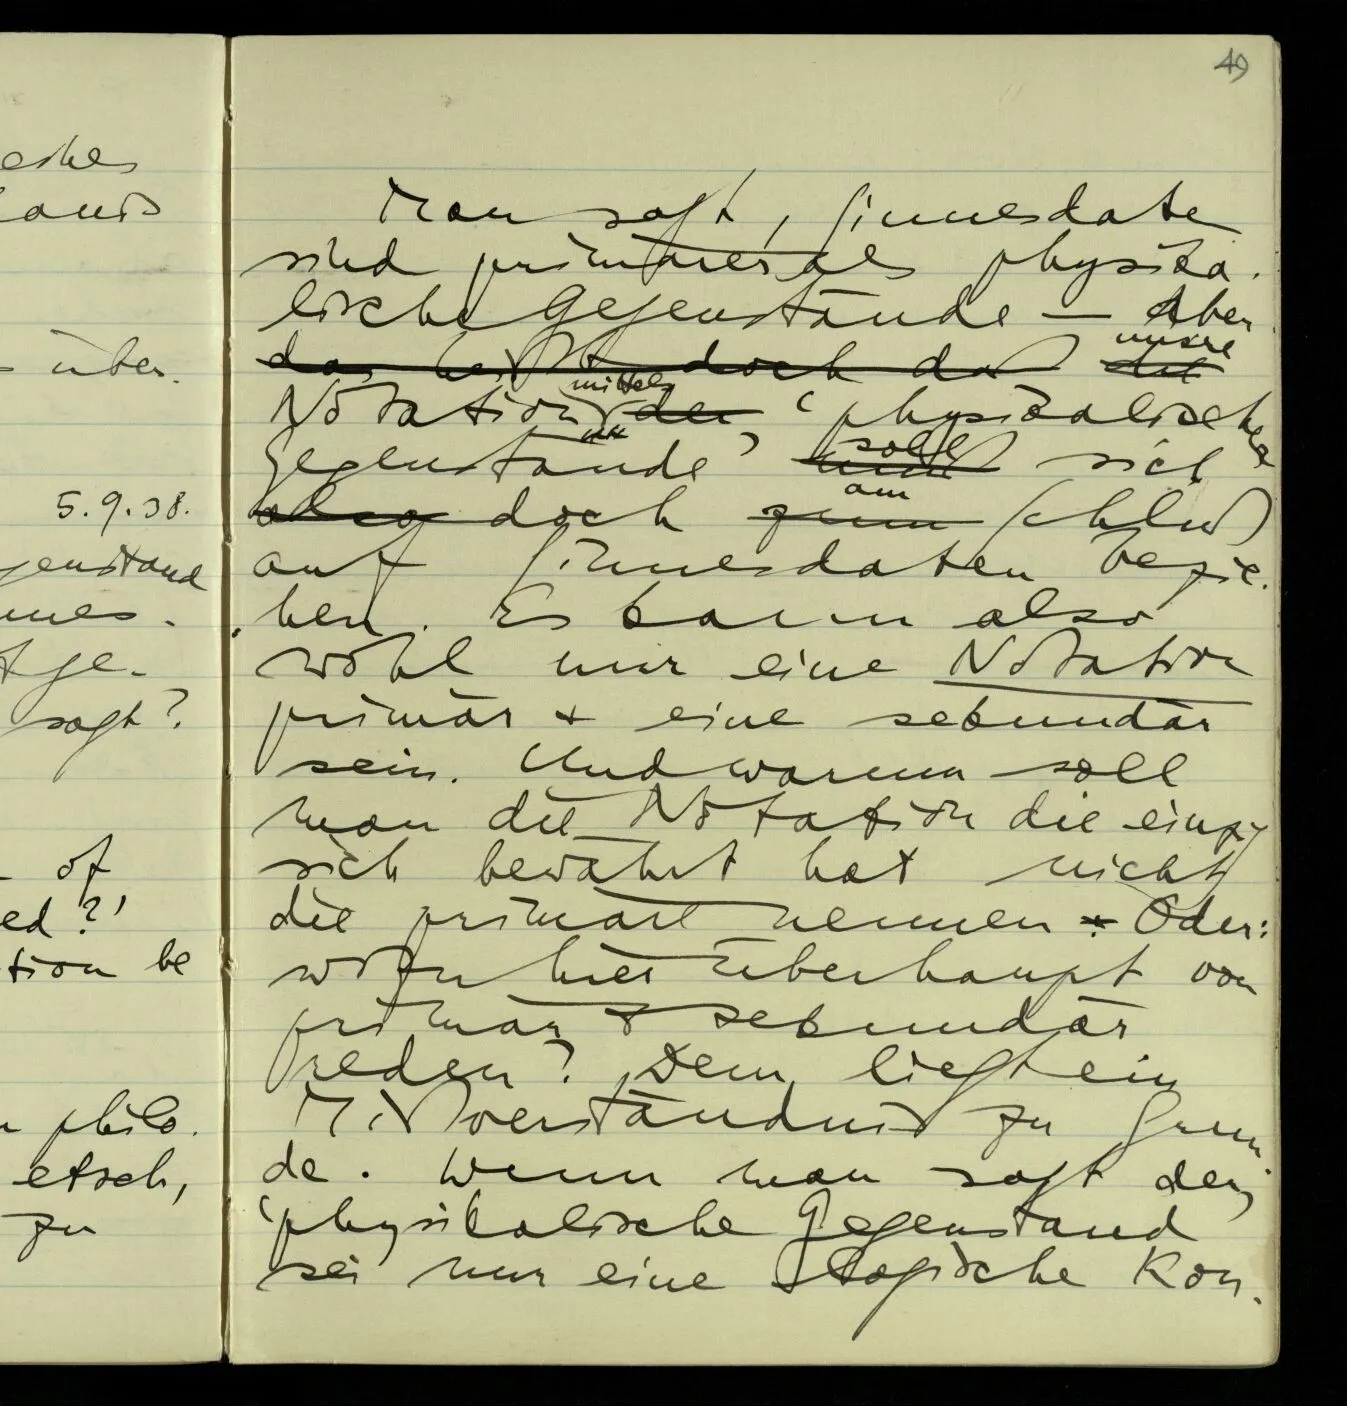 49
eches
über.
5.9.38.
genstand
nnes-
tge-
sagt?
of
ed?'
tion be
philo-
etsch,
zu
Man sagt, Sinnesdaten
sind primärer als physika-
lische Gegenstände — Aber
das heißt doch daß die unsre
Notation mittels der 'physikalischen
Gegenstände' muß soll sich
also doch zum am Schluß
auf Sinnesdaten bezie-
hen. Es kann also
wohl nur eine Notation
primär & eine sekundär
sein. Und warum soll
man die Notation die einzig
sich bewährt hat nicht
die primäre nennen & Oder:
wozu hier überhaupt von
primär & sekundär
reden? Dem liegt ein
Mißverständnis zu Grun-
de. Wenn man sagt der
'physikalische Gegenstand
sei nur eine logische Kon-